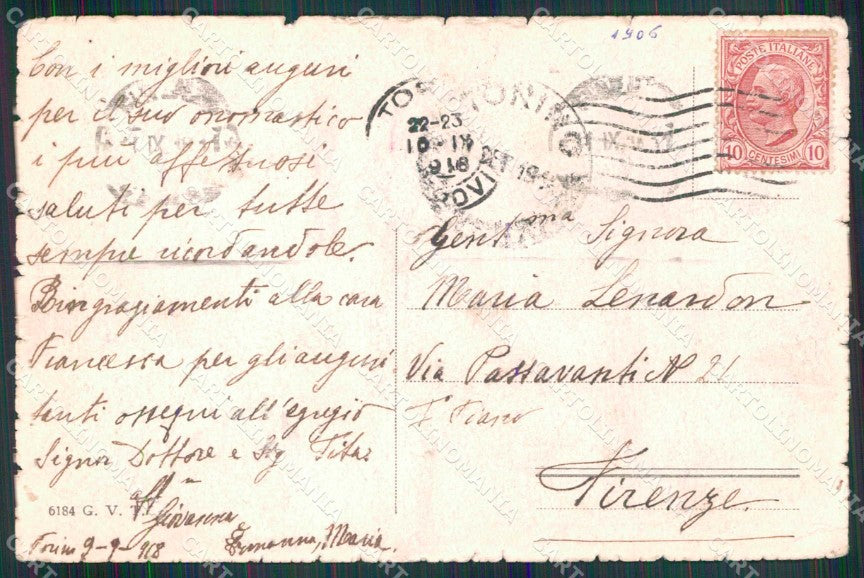 1906
POSTE ITALIANE
10 CENTESIMI 10
TORINO
22-23
10 IX
918
Con i migliori auguri
per il suo onomastico
i più affettuosi
saluti per tutte
sempre ricordandole.
Ringraziamenti alla cara
Francesca per gli auguri
tanti ossequi all'egregio
Signor Dottore e Sig
aff
Giovanna
Ermanna, Maria.
Torino 9-9-918
6184 G. V. T.
Signora
Maria Lenardon
Via Passavanti N 21
I° Piano
Firenze.
CARTOLINOMANIA